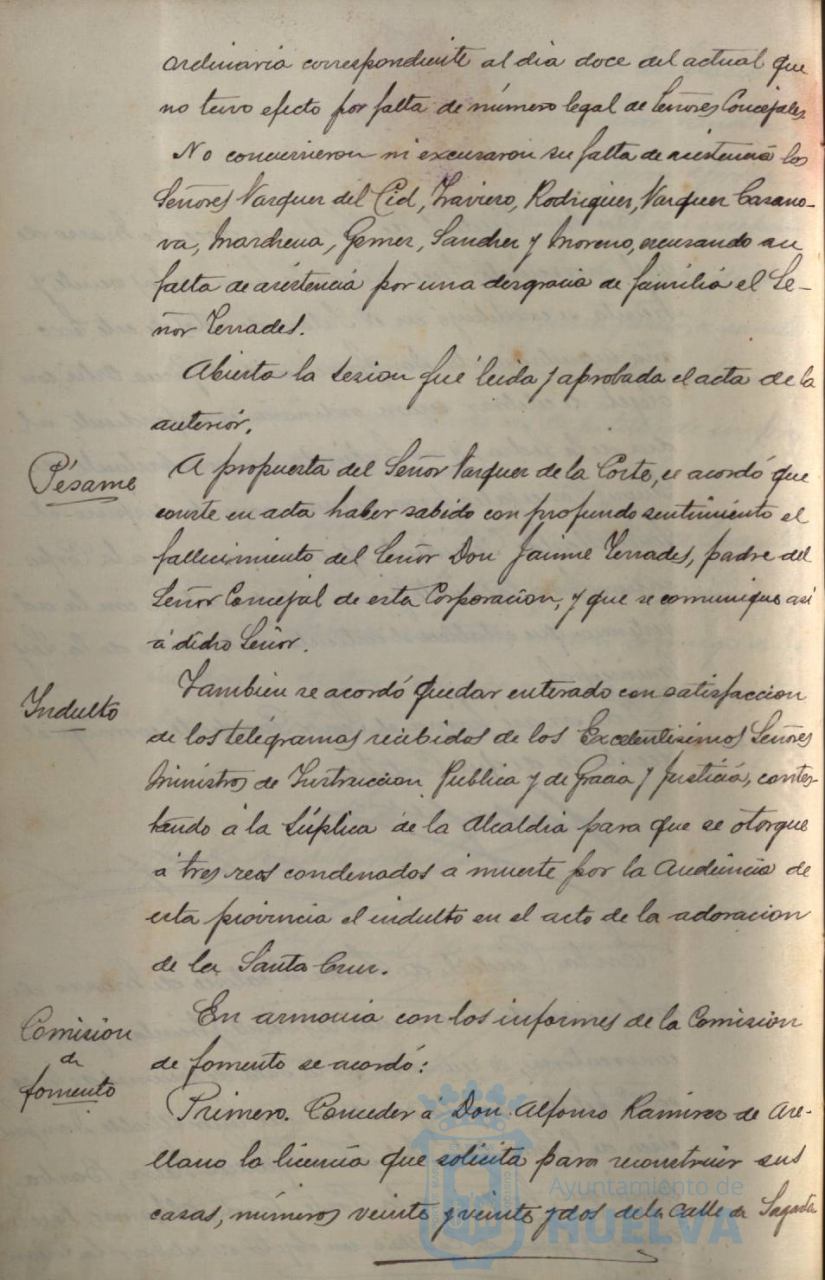 ordinaria correspondiente al dia doce del actual que
no tuvo efecto por falta de número legal de Señores Concejales
No concurrieron ni excusaron su falta de asistencia los
Señores Vazquez del Cid, Traviero, Rodriguez, Vazquez Casano-
va, Marchena, Gomez, Sanchez y Moreno, escusando su
falta de asistencia por una desgracia de familia el Se-
ñor Terrades.
Abierta la sesion fué leida y aprobada el acta de la
anterior.
Pésame
A propuesta del Señor Vazquez de la Corte, se acordó que
conste en acta haber sabido con profundo sentimiento el
fallecimiento del Señor Don Jaime Terrades, padre del
Señor Concejal de esta Corporacion, y que se comunique asi
á dicho Señor.
Indulto
Tambien se acordó quedar enterado con satisfaccion
de los telégramas recibidos de los Excelentisimos Señores
Ministros de Instruccion Publica y de Gracia y Justicia, contes-
tando á la súplica de la Alcaldia para que se otorgue
á tres reos condenados á muerte por la Audiencia de
esta provincia el indulto en el acto de la adoracion
de la Santa Cruz.
Comision
de
fomento
En armonia con los informes de la Comision
de fomento se acordó:
Primero. Conceder á Don Alfonso Ramirez de Are-
llano la licencia que solicita para reconstruir sus
casas, números veinte y veinte y dos de la calle de Sagasta
Ayuntamiento de
HUELVA